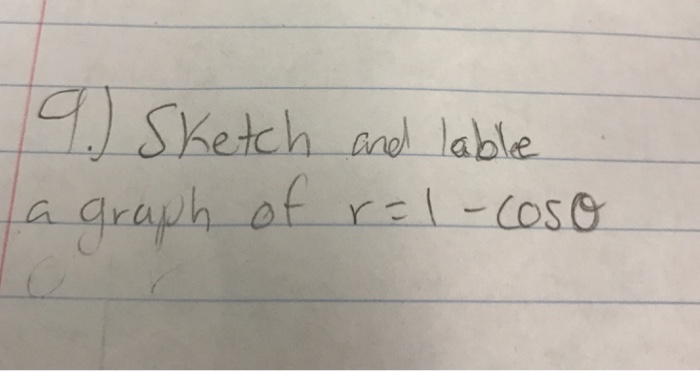 9.) Sketch and lable
a graph of r=1-cosθ